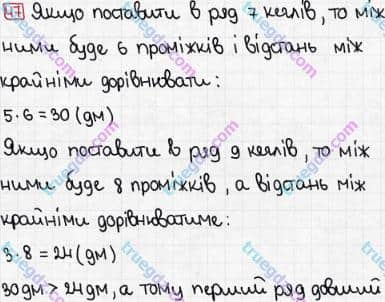 47 Якщо поставити в ряд 7 кеглів, то між
ними буде 6 проміжків і відстань між
крайніми дорівнювати:
5·6=30(дм)
Якщо поставити в ряд 9 кеглів, то між
ними буде 8 проміжків, а відстань між
крайніми дорівнюватиме:
3·8=24(дм)
30дм > 24дм, а тому перший ряд довший